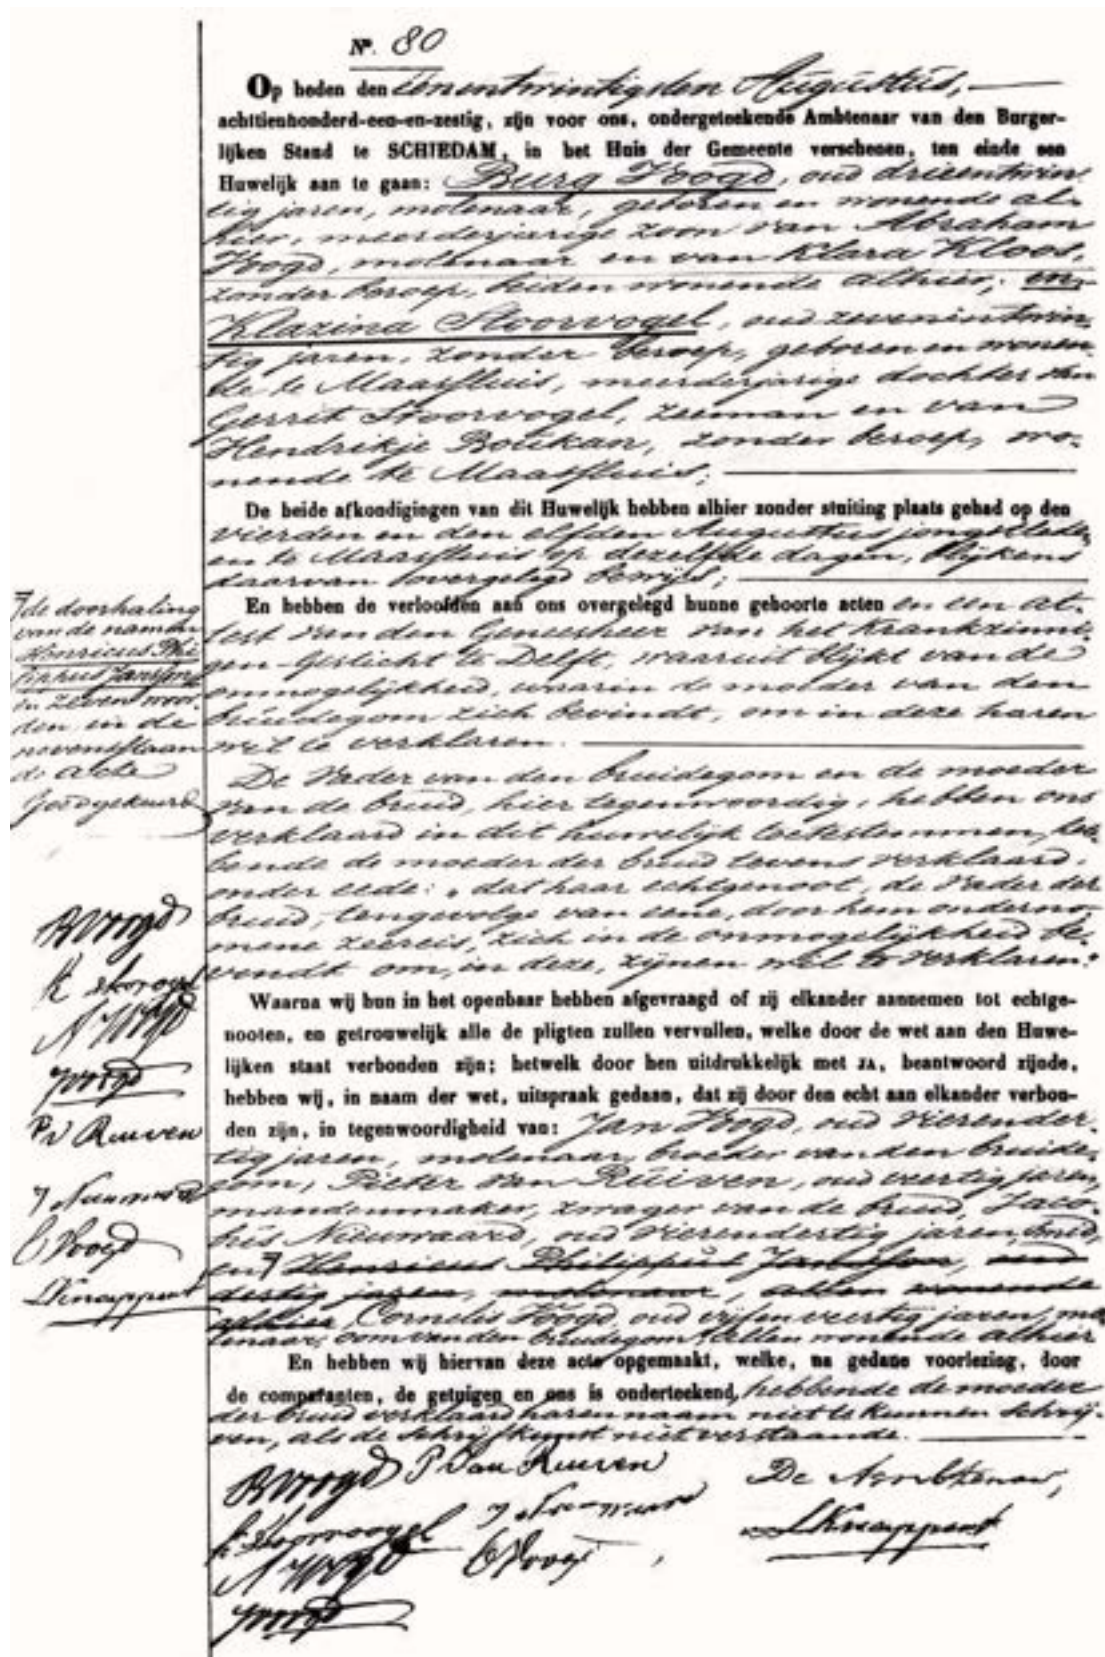 No. 80
Op heden den eenentwintigsten Augustus,
achttienhonderd-een-en-zestig, zijn voor ons, ondergeteekende Ambtenaar van den Burger-
lijken Stand te SCHIEDAM, in het Huis der Gemeente verschenen, ten einde een
Huwelijk aan te gaan: Burg Voogd, oud drieentwin-
tig jaren, molenaar, geboren en wonende al-
hier, meerderjarige zoon van Abraham
Voogd, molenaar en van Klara Kloos,
zonder beroep, beiden wonende alhier; en
Klazina Stoorvogel, oud zevenentwin-
tig jaren, zonder beroep, geboren en wonen-
de te Maassluis, meerderjarige dochter van
Gerrit Stoorvogel, zeeman en van
Hendrikje Boukan, zonder beroep, wo-
nende te Maassluis;
De beide afkondigingen van dit Huwelijk hebben alhier zonder stuiting plaats gehad op den
vierden en den elfden Augustus jongstleden
en te Maassluis op dezelfde dagen, blijkens
daarvan overgelegd bewijs;
En hebben de verloofden aan ons overgelegd hunne geboorte acten en een at-
test van den Geneesheer van het Krankzinni-
gen-Gesticht te Delft, waaruit blijkt van de
onmogelijkheid, waarin de moeder van den
bruidegom zich bevindt, om in deze haren
wil te verklaren.
De Vader van den bruidegom en de moeder
van de bruid, hier tegenwoordig, hebben ons
verklaard in dit huwelijk toetestemmen, heb-
bende de moeder der bruid tevens verklaard
onder eede: "dat haar echtgenoot, de Vader der
bruid, tengevolge van eene, door hem onderno-
mene zeereis, zich in de onmogelijkheid be-
vindt om, in deze, zijnen wil te verklaren."
Waarna wij hun in het openbaar hebben afgevraagd of zij elkander aannemen tot echtge-
nooten, en getrouwelijk alle de pligten zullen vervullen, welke door de wet aan den Huwe-
lijken staat verbonden zijn; hetwelk door hen uitdrukkelijk met JA, beantwoord zijnde,
hebben wij, in naam der wet, uitspraak gedaan, dat zij door den echt aan elkander verbon-
den zijn, in tegenwoordigheid van: Jan Voogd, oud vierender-
tig jaren, molenaar, broeder van den bruide-
gom, Pieter van Ruiven, oud veertig jaren,
mandenmaker, zwager van de bruid, Jaco-
bus Nieuwaard, oud vierendertig jaren, smid,
en Henricus Philippus Janssen, oud
dertig jaren, molenaar, allen wonende
alhier Cornelis Voogd, oud vijfenveertig jaren, mo-
lenaar, oom van den bruidegom, allen wonende alhier
En hebben wij hiervan deze acte opgemaakt, welke, na gedane voorlezing, door
de comparanten, de getuigen en ons is onderteekend, hebbende de moeder
der bruid verklaard haren naam niet te kunnen schrij-
ven, als de schrijfkunst niet verstaande.
BVoogd P van Ruuven De Ambtenaar,
K Stoorvogel J Nieuwaard LKnappert
A Voogd CVoogd
JVoogd
de doorhaling
van de namen
Henricus Phi
lippus Janssen
in zeven woor-
den in de
nevenstaan
de acte
Goedgekeurd
BVoogd
K Storvogel
A Voogd
JVoogd
P v Ruuven
J Nieuwaard
C Voogd
LKnappert